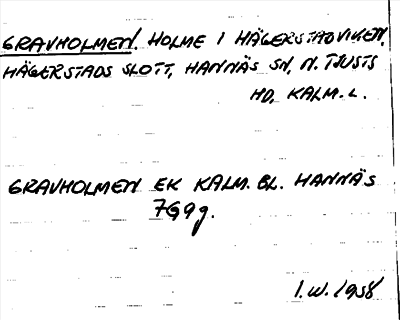 GRAVHOLMEN. HOLME I HÄGERSTADVIKEN,
HÄGERSTADS SLOTT, HANNÄS SN, N. TJUSTS
HD, KALM. L.
GRAVHOLMEN EK KALM. BL. HANNÄS
7G9g.
I.W. 1958